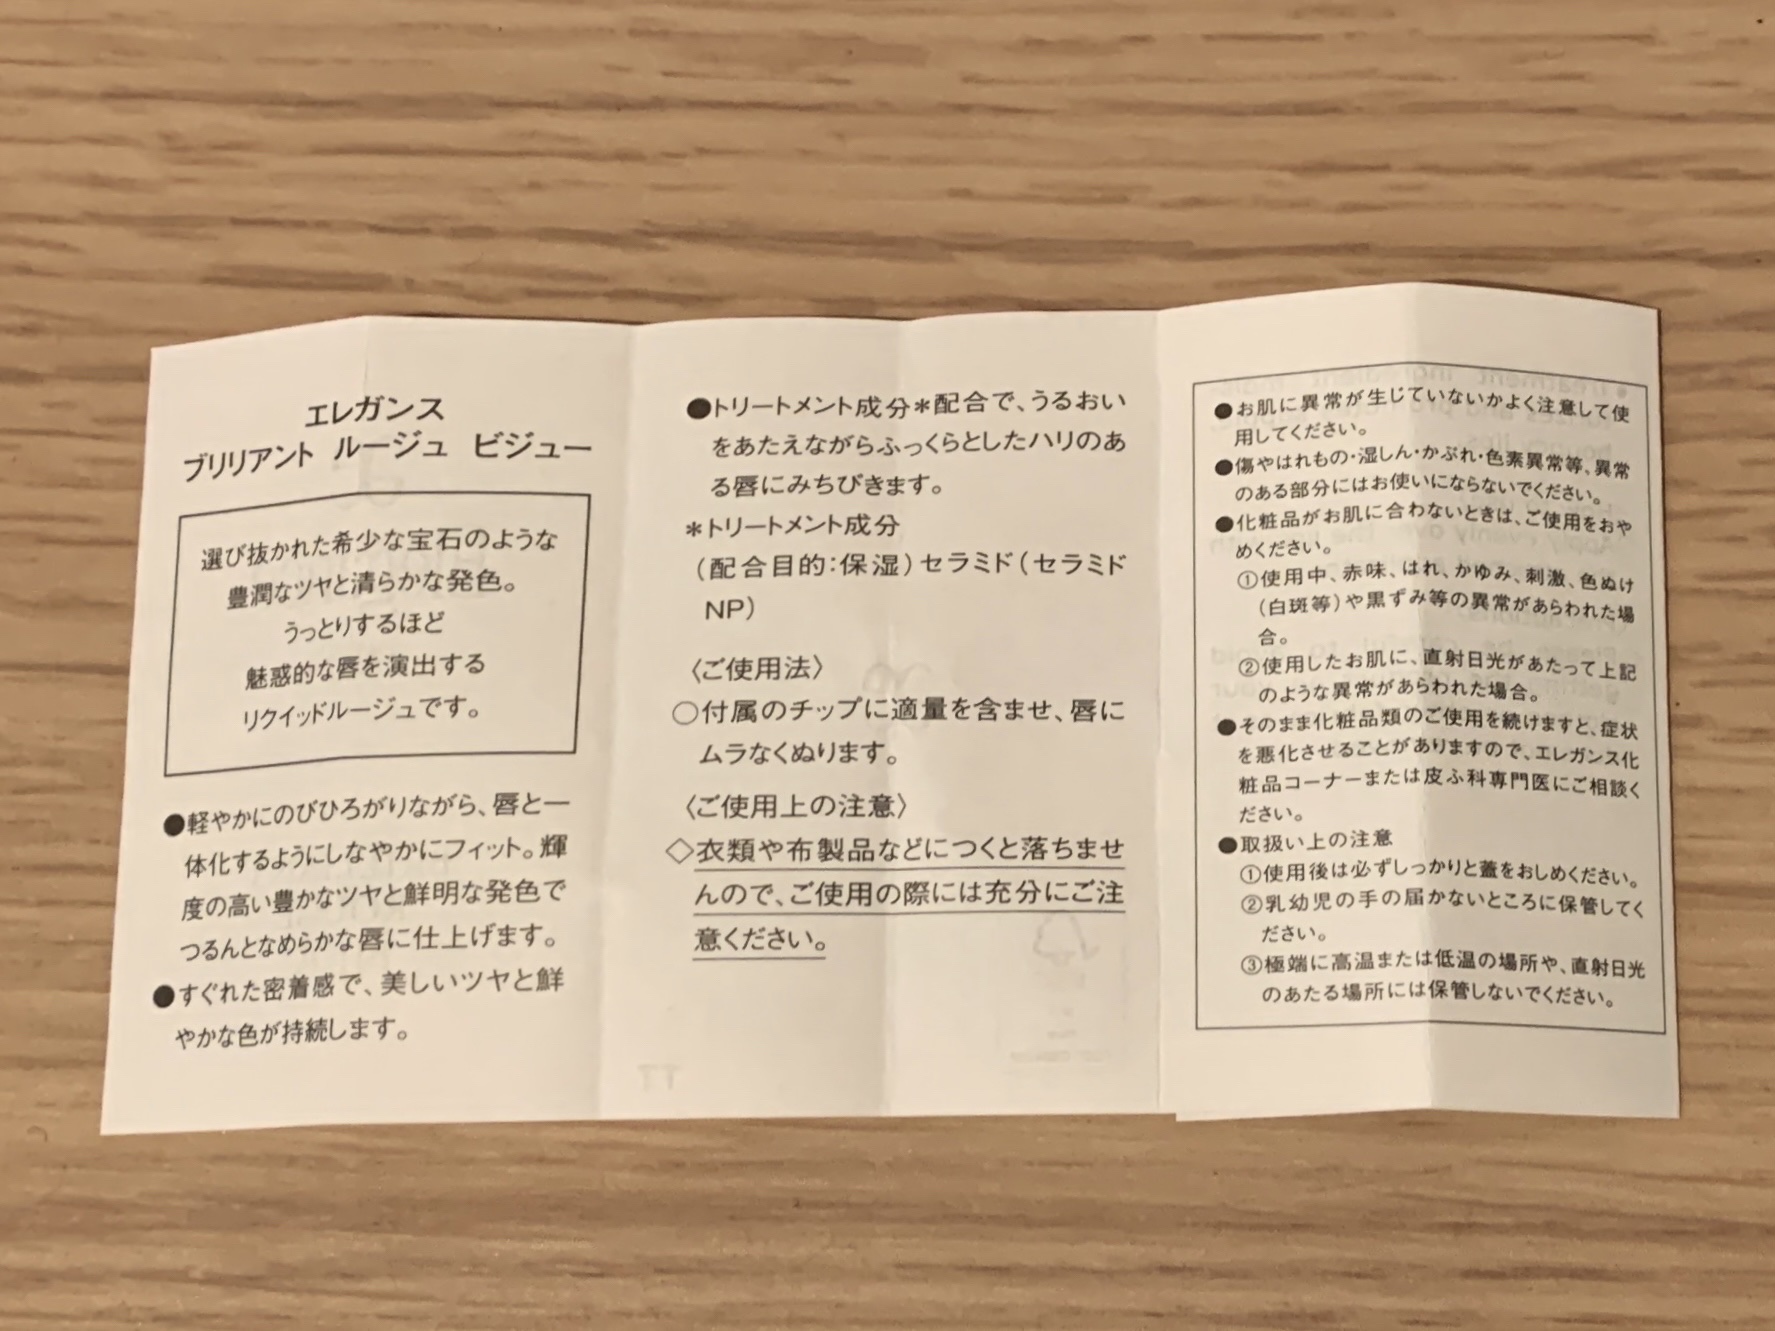 エレガンス
ブリリアント ルージュ ビジュー
選び抜かれた希少な宝石のような
豊潤なツヤと清らかな発色。
うっとりするほど
魅惑的な唇を演出する
リクイッドルージュです。
●軽やかにのびひろがりながら、唇と一
体化するようにしなやかにフィット。輝
度の高い豊かなツヤと鮮明な発色で
つるんとなめらかな唇に仕上げます。
●すぐれた密着感で、美しいツヤと鮮
やかな色が持続します。
●トリートメント成分＊配合で、うるおい
をあたえながらふっくらとしたハリのあ
る唇にみちびきます。
＊トリートメント成分
（配合目的：保湿）セラミド（セラミド
NP）
〈ご使用法〉
○付属のチップに適量を含ませ、唇に
ムラなくぬります。
〈ご使用上の注意〉
◇衣類や布製品などにつくと落ちませ
んので、ご使用の際には充分にご注
意ください。
●お肌に異常が生じていないかよく注意して使
用してください。
●傷やはれもの・湿しん・かぶれ・色素異常等、異常
のある部分にはお使いにならないでください。
●化粧品がお肌に合わないときは、ご使用をおや
めください。
①使用中、赤味、はれ、かゆみ、刺激、色ぬけ
（白斑等）や黒ずみ等の異常があらわれた場
合。
②使用したお肌に、直射日光があたって上記
のような異常があらわれた場合。
●そのまま化粧品類のご使用を続けますと、症状
を悪化させることがありますので、エレガンス化
粧品コーナーまたは皮ふ科専門医にご相談く
ださい。
●取扱い上の注意
①使用後は必ずしっかりと蓋をおしめください。
②乳幼児の手の届かないところに保管してく
ださい。
③極端に高温または低温の場所や、直射日光
のあたる場所には保管しないでください。